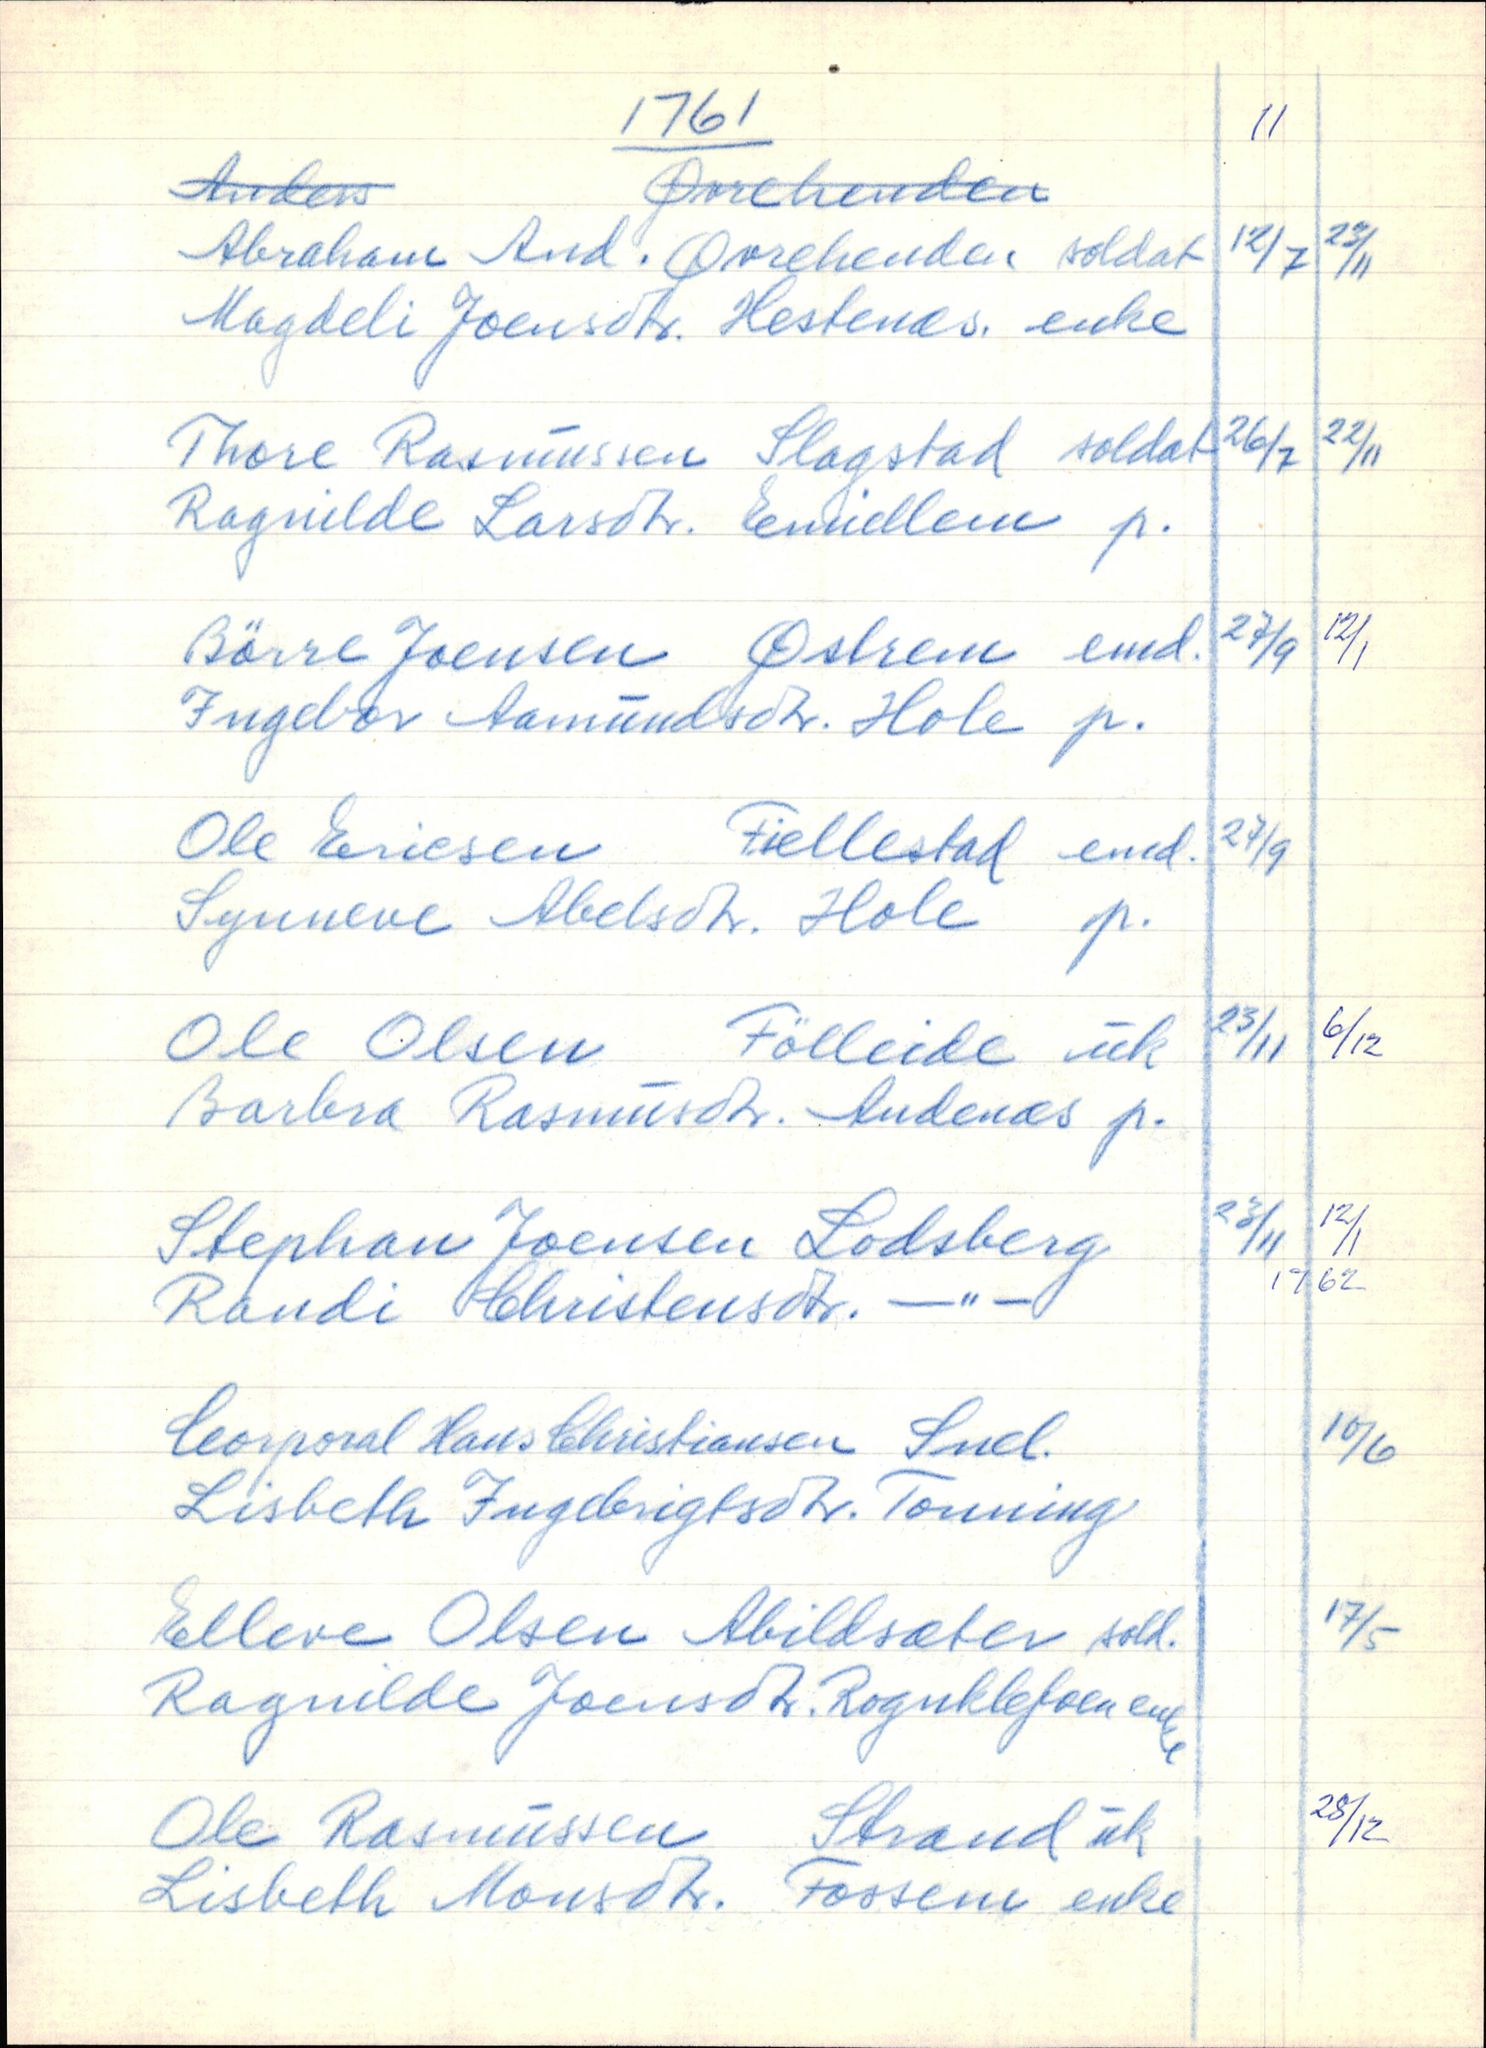 1761 11
Anders Øvrehenden
Abraham And. Øvrehenden soldat 12/7 23/11
Magdeli Joensdtr. Hestenæs. enke
Thore Rasmussen Slagstad soldat 26/7 22/11
Ragnilde Larsdtr. Eemidlem p.
Börre Joensen Østrem emd. 27/9 12/1
Ingebor Aamundsdtr. Hole p.
Ole Ericsen Fiellestad emd. 27/9
Synneve Abelsdtr. Hole p.
Ole Olsen Fölleide uk 23/11 6/12
Barbra Rasmusdtr. Andenæs p.
Stephan Joensen Lodsberg 23/11 12/1
Randi Christensdtr. —"— 1762
Corporal Hans Christiansen Snel. 10/6
Lisbeth Ingebrigtsdtr. Tonning
Elleve Olsen Abildsæter sold. 17/5
Ragnilde Joensdtr. Rognklefoen enke
Ole Rasmussen Strand uk 28/12
Lisbeth Monsdtr. Fossem enke